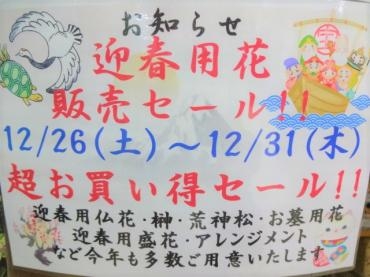 お知らせ
迎春用花
販売セール!!
12/26(土)～12/31(木)
超お買い得セール!!
迎春用仏花・榊・荒神松・お墓用花
迎春用盛花・アレンジメント
など今年も多数ご用意いたします